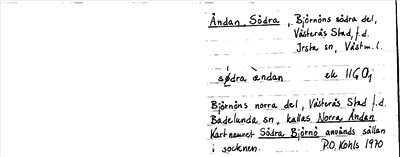 Åndan, Södra, Björnöns södra del,
Västerås Stad, f.d.
Irsta sn, Västm. l.
södra ändan ek 11G0j
Björnöns norra del, Västerås Stad f.d.
Badelunda sn, kallas Norra Åndan
Kartnamnet Södra Björnö används sällan
i socknen. P.O. Kohls 1970